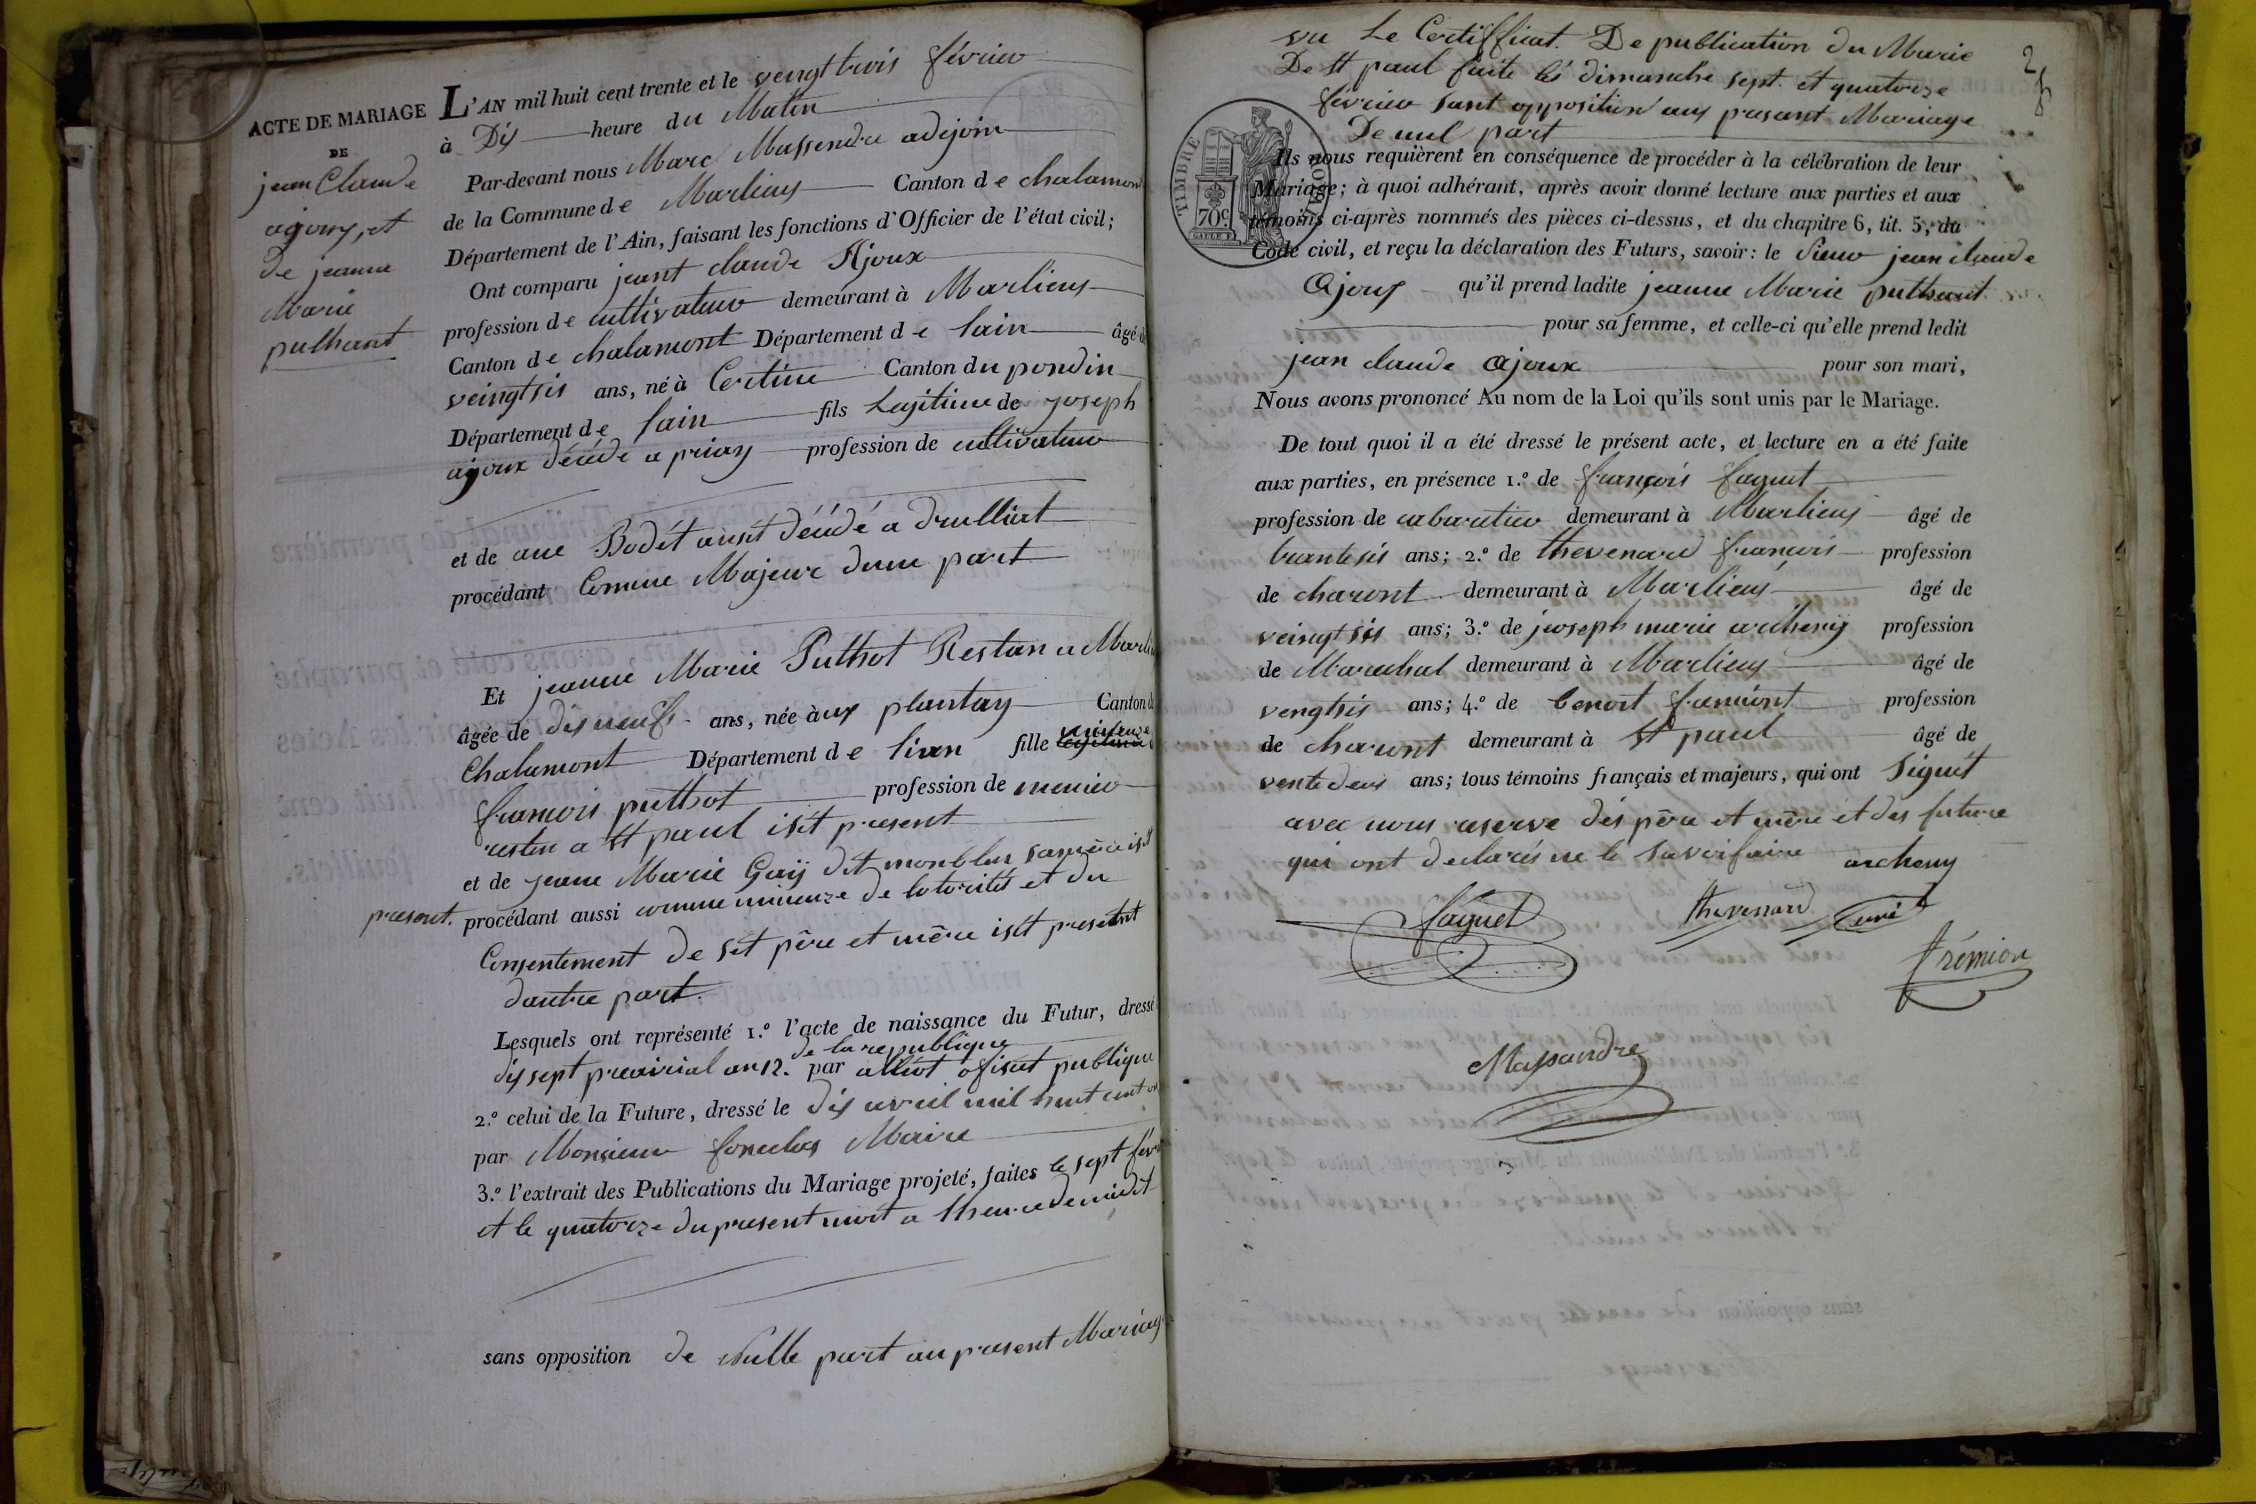 ACTE DE MARIAGE
DE
jean Claude
ajoux, et
De jeanne
Marie
puthant
L'AN mil huit cent trente et le vengttrois février
à Dix heure du Matin
Par-devant nous Marc Massendre adejoin
de la Commune de Marlieux Canton de chalamont
Département de l'Ain, faisant les fonctions d'Officier de l'état civil;
Ont comparu jeant claude Ajoux
profession de cultivateur demeurant à Marlieux
Canton de chalamont Département de lain âgé de
veingtsix ans, né à Certine Canton du pondin
Département de lain fils Legitime de joseph
ajoux décédé a priay profession de cultivateur
et de ane Bodét ausit décédé a druilliat
procédant Comme Majeure dune part
Et jeanne Marie Puthot Restan a Marlieux
âgée de disneuf ans, née àux plantay Canton de
Chalamont Département de lien fille mineure
françois puthot profession de meunier
resten a St paul isit present
et de jeane Marie Gaÿ dit monblan samère isit
present. procédant aussi comme mineure de lotorités et du
Consentement de set père et mère isit present
dautre part.
Lesquels ont représenté 1.º l'acte de naissance du Futur, dressé
de la republique
dix sept preairial an 12. par alliot ofisié publique
2.º celui de la Future, dressé le dix avril mil huit cent
par Monsieur Maire
3.º l'extrait des Publications du Mariage projeté, faites le sept févr
et le quatorze du present moit a lheure de midit
sans opposition de Nulle part au present Mariage
2
vu Le Certifficat. De publication du Marie
De St paul faite lés dimanche sept. et quatorze
fevrier sant opposition aux present Mariage
De nul part
TIMBRE ROYAL
70c
Ils nous requièrent en conséquence de procéder à la célébration de leur
Mariage; à quoi adhérant, après avoir donné lecture aux parties et aux
témoins ci-après nommés des pièces ci-dessus, et du chapitre 6, tit. 5, du
Code civil, et reçu la déclaration des Futurs, savoir: le Sieur jean claude
Ajoux qu'il prend ladite jeanne Marie puthant
pour sa femme, et celle-ci qu'elle prend ledit
jean claude Ajoux pour son mari,
Nous avons prononcé Au nom de la Loi qu'ils sont unis par le Mariage.
De tout quoi il a été dressé le présent acte, et lecture en a été faite
aux parties, en présence 1.º de françois faguet
profession de cabaretier demeurant à Marlieux âgé de
trantesis ans; 2.º de thevenard francois profession
de charont demeurant à Marlieux âgé de
veingtsix ans; 3.º de joseph marie archeny profession
de Marechal demeurant à Marlieux âgé de
vengtsix ans; 4.º de benoit fremiont profession
de charont demeurant à St paul âgé de
ventedeux ans; tous témoins français et majeurs, qui ont Signét
avec nous reserve dés père et mère et des future
qui ont declarés ne le savoir faire archeny
faguet thevenard
frémion
Massandre